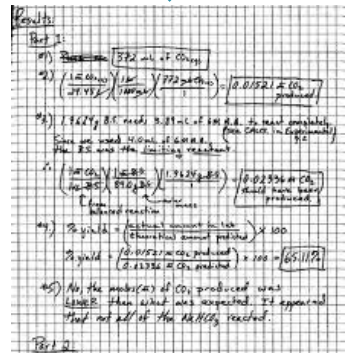 Results:
Part 1:
#1) 372 mL of CO2(g)
#2) (1 m CO2(g) / 24.45 L) (1 L / 1000 mL) (372 mL CO2 / 1) = 0.01521 m CO2 produced
#3) 1.9624g B.S. needs 3.89mL of 6M A.A. to react completely
(see CALCS. in Experimental)
Since we used 4.0mL of 6M A.A.
the B.S. was the limiting reactant.
∴ (1 m CO2 / 1 m B.S.) (1 m B.S. / 84.0g B.S.) (1.9624g B.S. / 1) = 0.02336 m CO2 should have been produced.
from balanced reaction
#4) % yield = (actual amount in lab / theoretical amount predicted) x 100
% yield = (0.01521 m CO2 produced / 0.02336 m CO2 predicted) x 100 = 65.11%
#5) No, the moles(m) of CO2 produced was
LOWER than what was expected. It appeared
that not all of the NaHCO3 reacted.
Part 2: